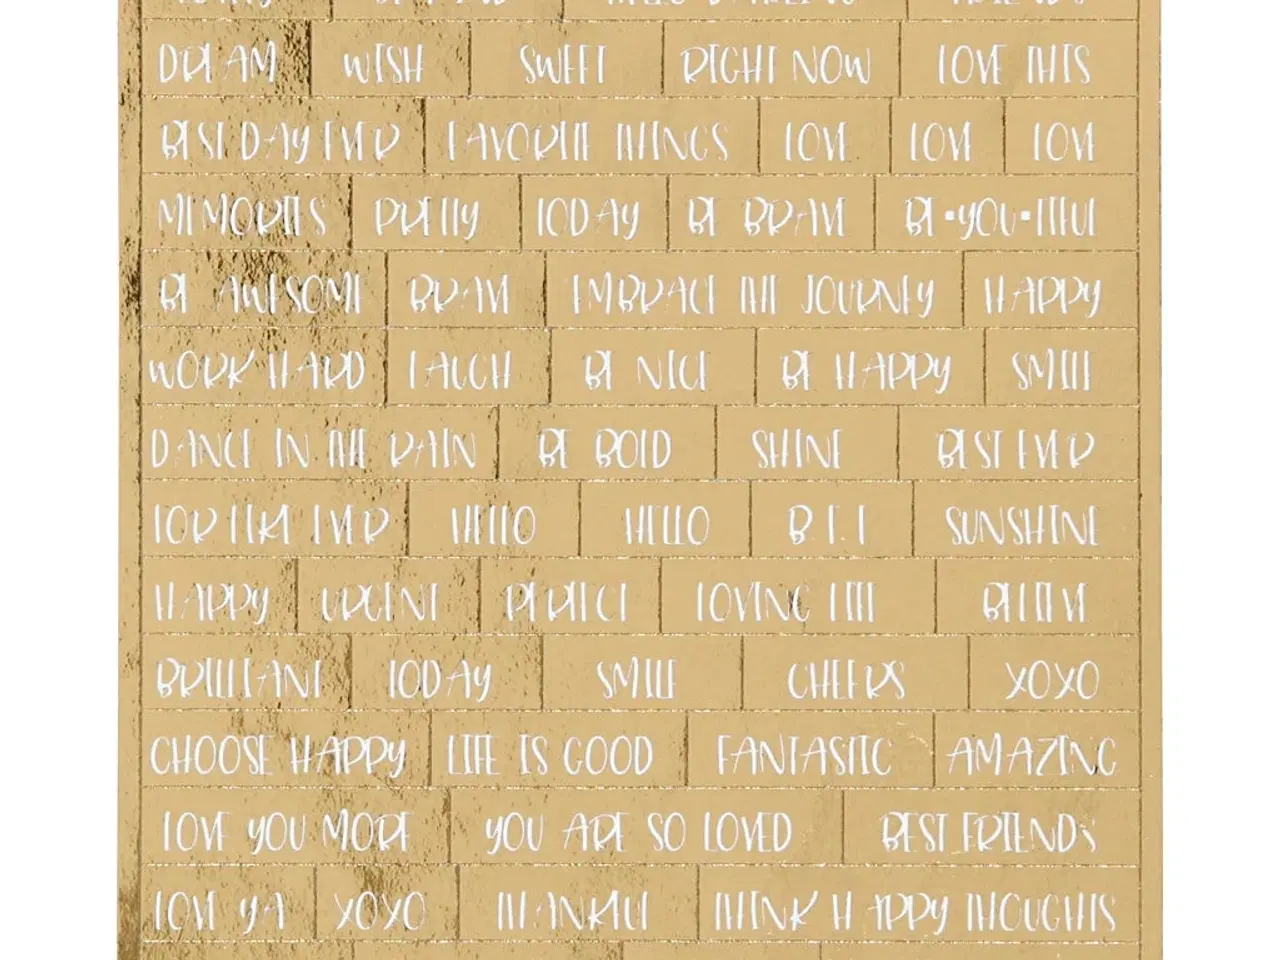 FRIENDS
DREAM WISH SWEET RIGHT NOW LOVE THIS
BEST DAY EVER FAVORITE THINGS LOVE LOVE LOVE
MEMORIES PRETTY TODAY BE BRAVE BE•YOU•TIFUL
BE AWESOME BRAVE EMBRACE THE JOURNEY HAPPY
WORK HARD LAUGH BE NICE BE HAPPY SMILE
DANCE IN THE RAIN BE BOLD SHINE BEST EVER
FOREVER EVER HELLO HELLO B.F.F SUNSHINE
HAPPY URGENT PERFECT LOVING LIFE BELIEVE
BRILLIANT TODAY SMILE CHEERS XOXO
CHOOSE HAPPY LIFE IS GOOD FANTASTIC AMAZING
LOVE YOU MORE YOU ARE SO LOVED BEST FRIENDS
LOVE YA XOXO THANKFUL THINK HAPPY THOUGHTS